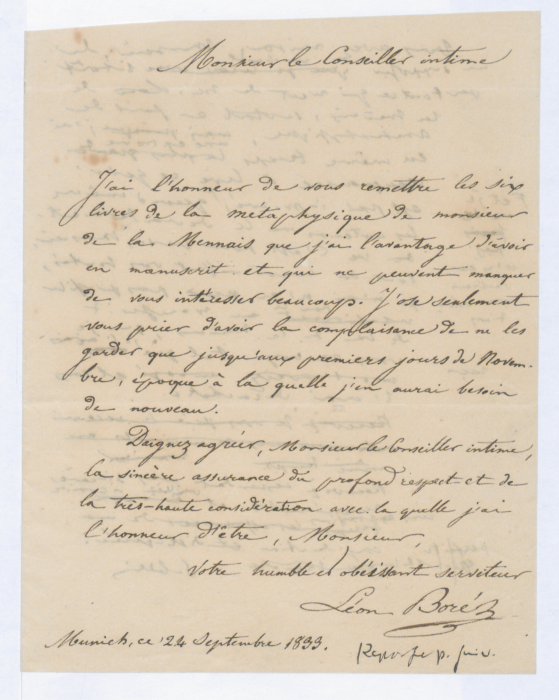 Monsieur le Conseiller intime
J'ai l'honneur de vous remettre les six
livres de la métaphysique de monsieur
de la Mennais que j'ai l'avantage d'avoir
en manuscrit et qui ne peuvent manquer
de vous intéresser beaucoup. J'ose seulement
vous prier d'avoir la complaisance de ne les
garder que jusqu'aux premiers jours de Novem-
bre, époque à la quelle j'en aurai besoin
de nouveau.
Daignez agréer, Monsieur le Conseiller intime,
la sincère assurance du profond respect et de
la très-haute considération avec la quelle j'ai
l'honneur d'être, Monsieur,
votre humble et obéissant serviteur
Léon Boré
Munich, ce 24 Septembre 1833.